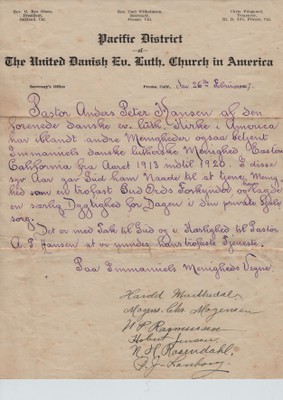 Rev. H. Rex Olsen,
President,
Oakland, Cal.
Rev. Carl Wilhelmsen,
Secretary,
Fresno, Cal.
Chris Villumsen,
Treasurer,
Fresno, Cal.
Pacific District
of
The United Danish Ev. Luth. Church in America
Secretary's Office
Fresno, Calif.
26th February
Pastor Anders Peter Hansen af den
forenede danske ev. luth. Kirke i Amerika
har iblandt andre Menigheder ogsaa betjent
Emmanuels danske lutherske Menighed Easton
California fra Aaret 1913 indtil 1920. I disse
syv Aar gav Gud ham Naade til at tjene Menig
hed som en trofast Guds Ords Forkynder
en særlig Dygtighed for Dagen i den private Sjæle
sorg.
Det er med Tak til Gud og i Kærlighed til Pastor
A. P. Hansen at vi mindes hans trofaste Tjeneste.
Paa Emmanuels Menigheds Vegne.
Harold
Mogens Chr. Mogensen
W P Rasmussen
Jensen
N. H. Rosendahl.